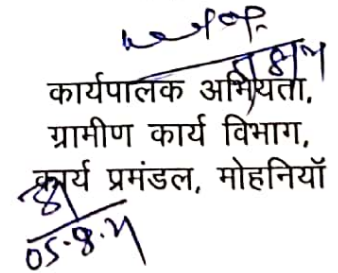 कार्यपालक अभियंता,
ग्रामीण कार्य विभाग,
कार्य प्रमंडल, मोहनियाँ
05.8.24